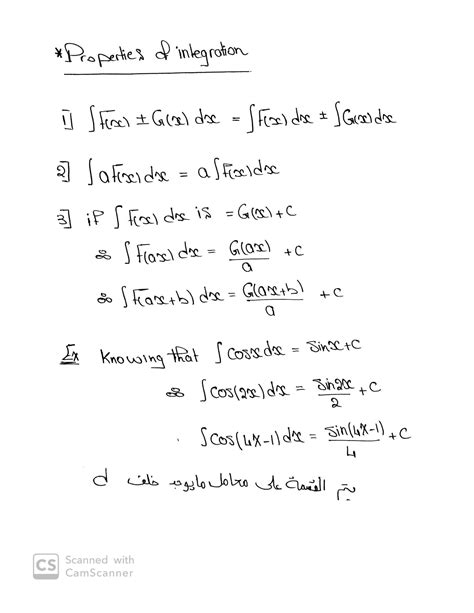 *Properties of integration
1] ∫F(x) ± G(x) dx = ∫F(x) dx ± ∫G(x) dx
2] ∫aF(x) dx = a∫F(x) dx
3] if ∫F(x) dx is = G(x) + C
∴ ∫F(ax) dx = G(ax)/a + C
∴ ∫F(ax+b) dx = G(ax+b)/a + C
Ex Knowing that ∫cosx dx = sinx + C
∴ ∫cos(2x) dx = sin2x/2 + C
∫cos(4x-1) dx = sin(4x-1)/4 + C
يتم القسمة على معامل ما يوجد خلف d
CS Scanned with
CamScanner